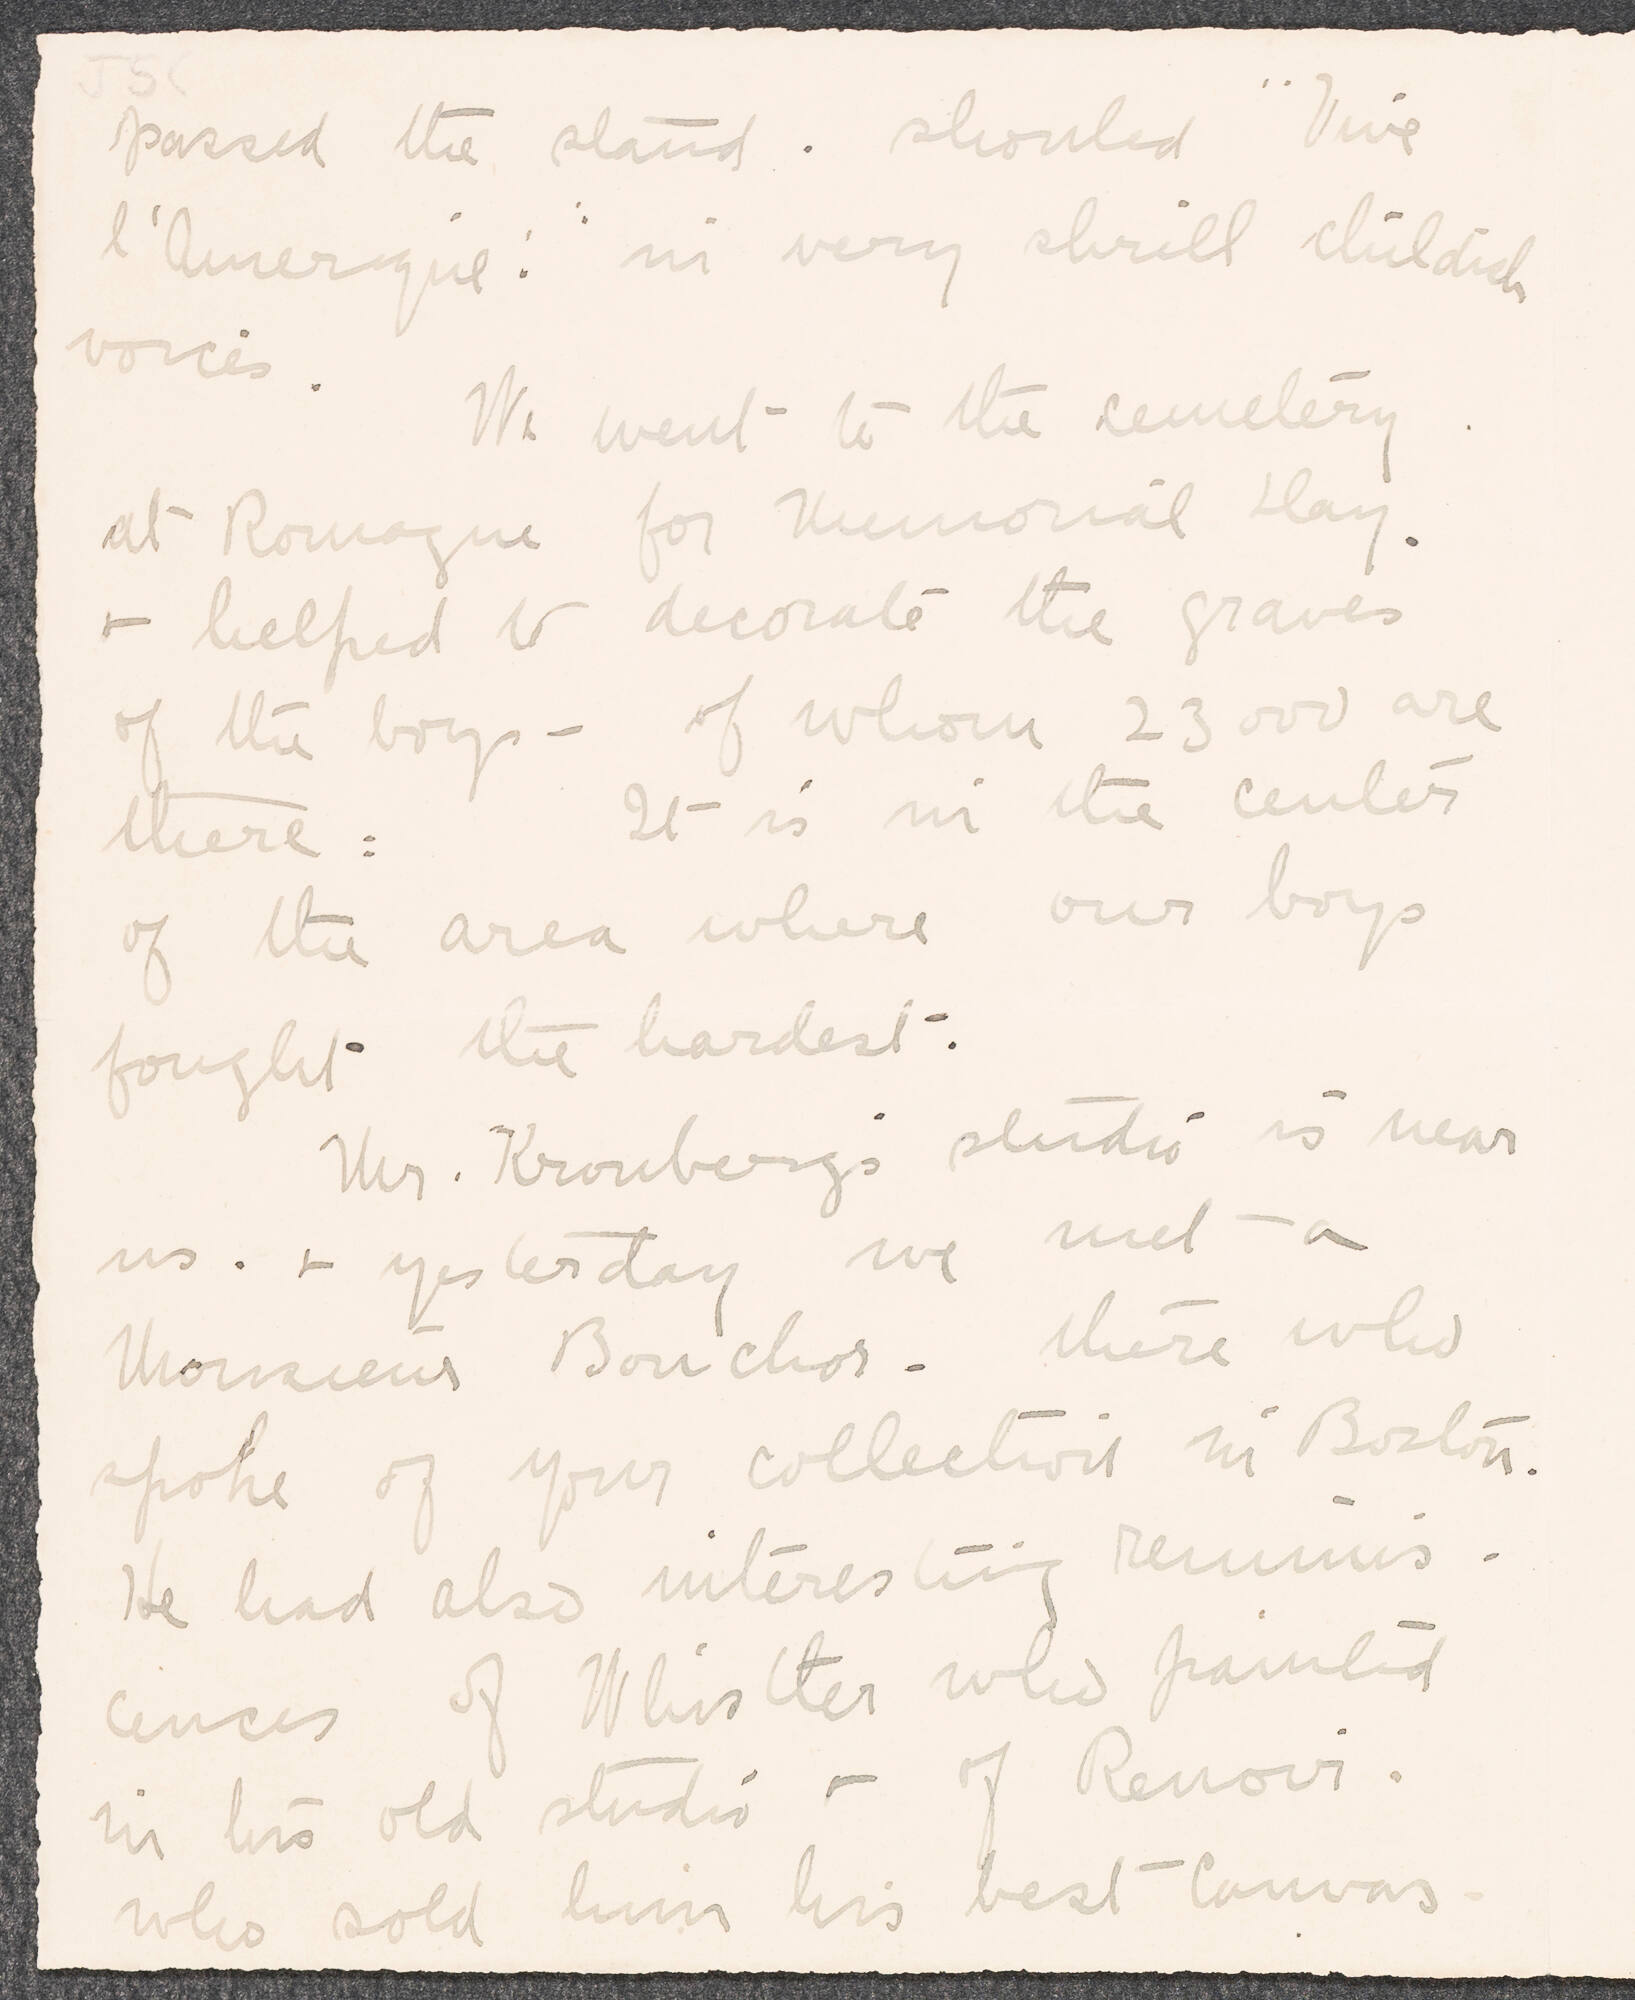 passed the stand. shouted "Vive
l'Amerique!" in very shrill childish
voices.
We went to the cemetery
at Romagne for Memorial Day.
+ helped to decorate the graves
of the boys - of whom 23000 are
there: It is in the center
of the area where our boys
fought the hardest.
Mr. Kronberg's studio is near
us. + yesterday we met a
Monsieur Bouchor - there who
spoke of your collection in Boston.
He had also interesting reminis-
cences of Whistler who painted
in his old studio + of Renoir.
who sold him his best canvas.